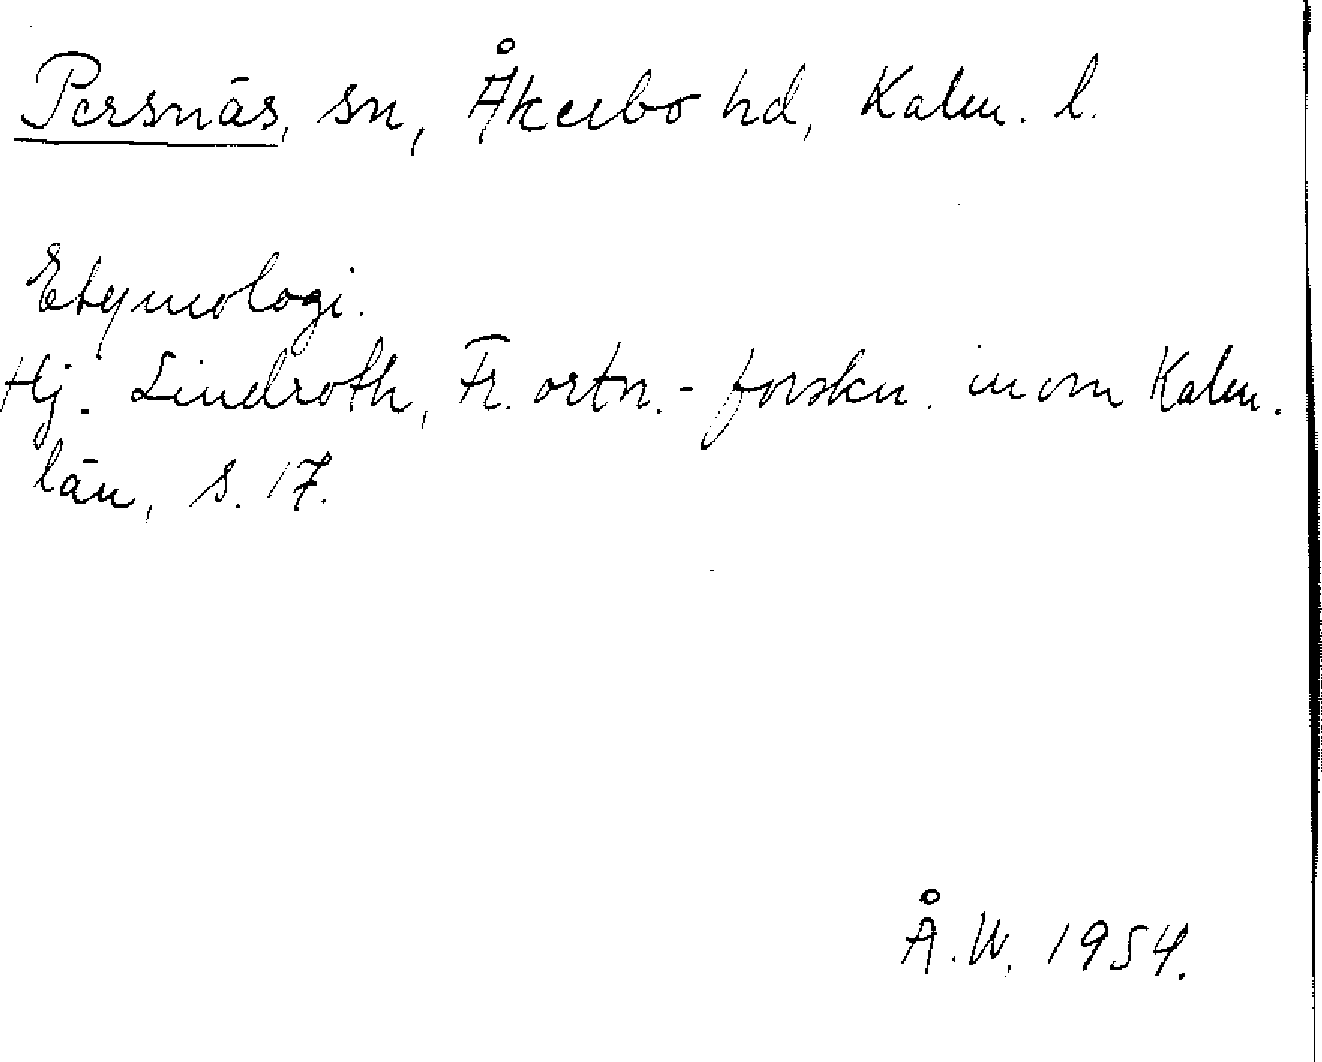 Persnäs, sn, Åkerbo hd, Kalm. l.
Etymologi.
Hj. Lindroth, Fr. ortn.-forskn. inom Kalm.
län, s. 17.
Å.W. 1954.